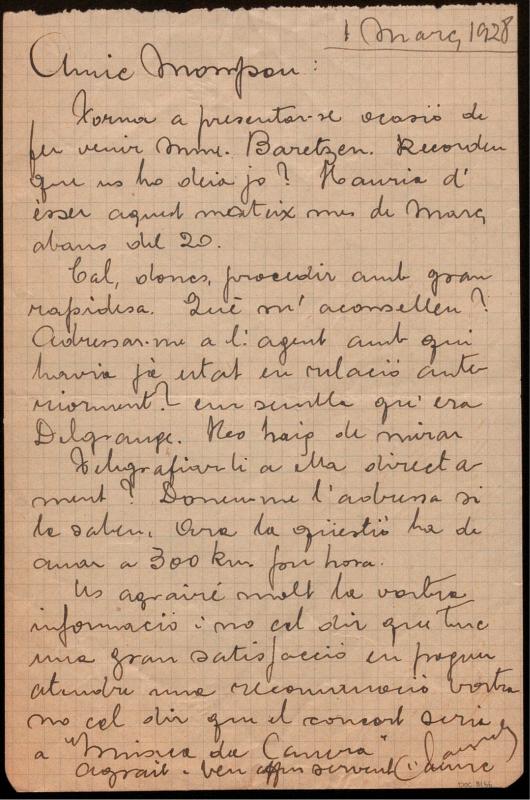 1 Març 1928
Amic Mompou:
Torna a presentar-se ocasió de
fer venir Mme. Baretzen. Recordeu
que us ho deia jo? Hauria d'
ésser aquest mateix mes de Març,
abans del 20.
Cal, doncs, procedir amb gran
rapidesa. Què m'aconselleu?
Adressar-me a l'agent amb qui
havia jà estat en relació ante-
riorment? em sembla qu'era
Delgrange. Heo haig de mirar
Telegrafiar-li a ella directa-
ment? Doneu-me l'adressa si
la sabeu. Ara la qüestió ha de
anar a 300 km. per hora.
Us agrairé molt la vostra
informació i no cal dir que tinc
una gran satisfacció en poguer
atendre una recomanació vostra
no cal dir que el concert seria
a "Musica da Camera"
Agrait i ben servent
DOC. 8166